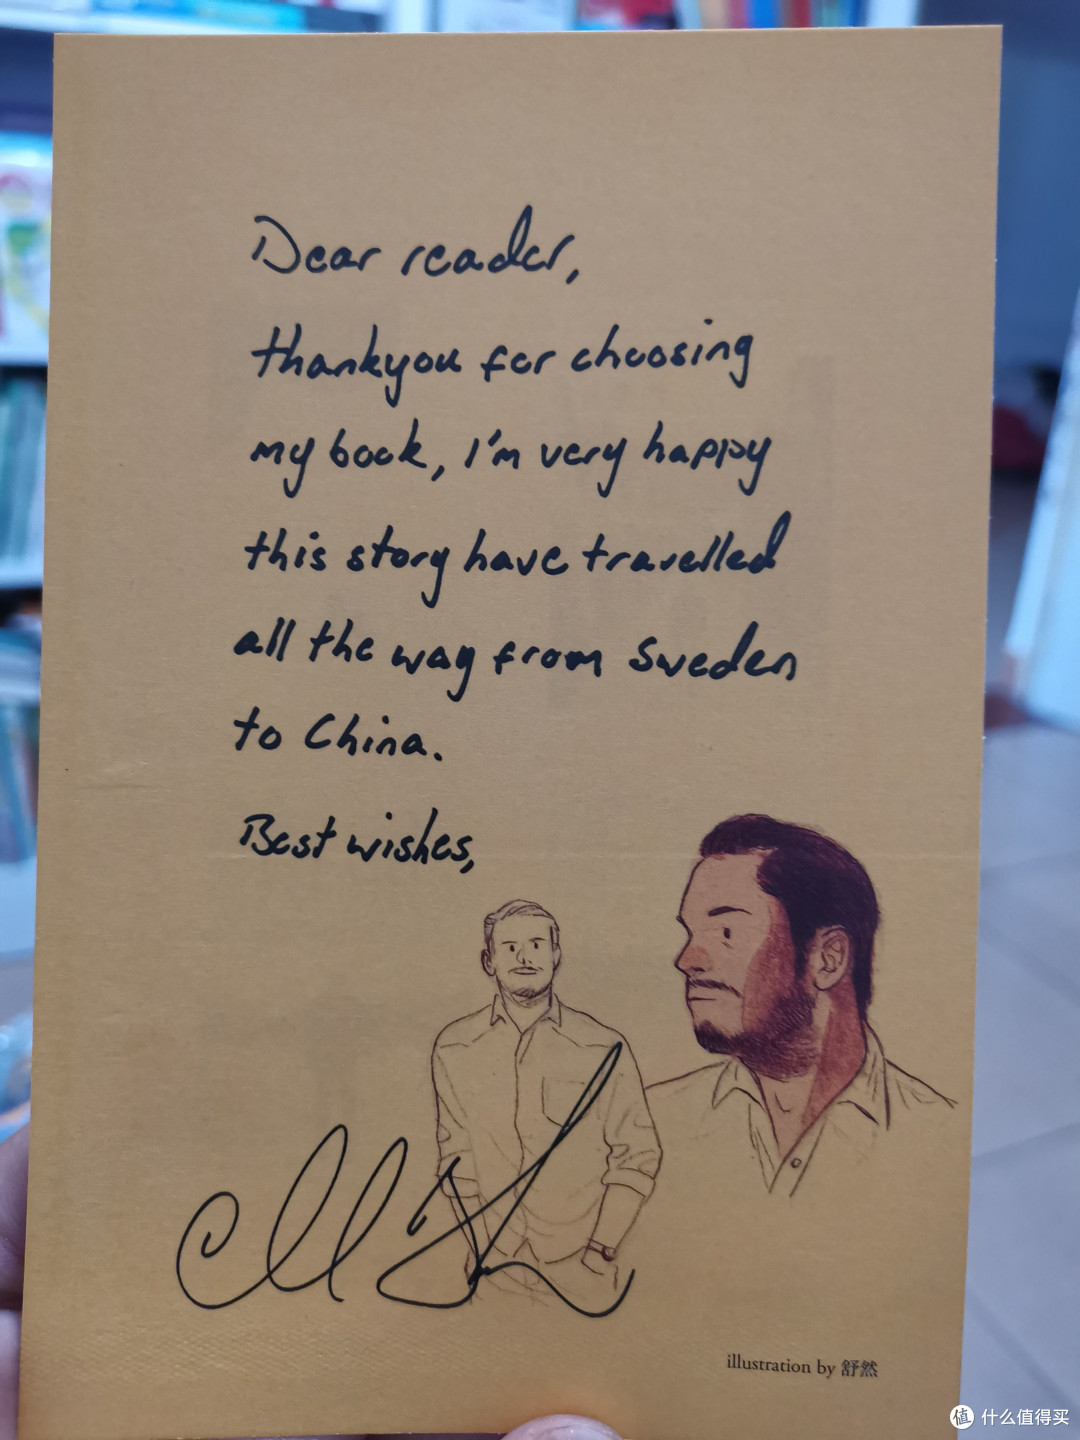 Dear reader,
thankyou for choosing
my book, I'm very happy
this story have travelled
all the way from Sweden
to China.
Best wishes,
illustration by 舒然
值 什么值得买